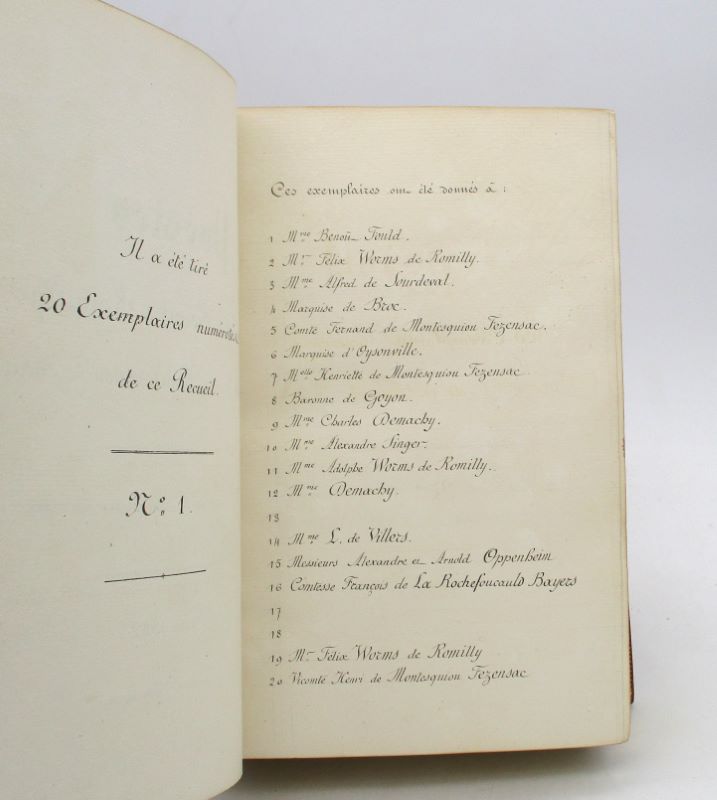 Il a été tiré
20 Exemplaires numérotés
de ce Recueil.
N° 1.
Ces exemplaires ont été donnés à :
1 Mme Benoît Fould.
2 Mr Félix Worms de Romilly.
3 Mme Alfred de Sourdeval.
4 Marquise de Broc.
5 Comte Fernand de Montesquiou Fezensac.
6 Marquise d'Oysonville.
7 Melle Henriette de Montesquiou Fezensac
8 Baronne de Goyon.
9 Mme Charles Demachy.
10 Mme Alexandre Singer.
11 Mme Adolphe Worms de Romilly.
12 Mme Demachy.
13
14 Mme L. de Villers.
15 Messieurs Alexandre et Arnold Oppenheim
16 Comtesse François de La Rochefoucauld Bayers
17
18
19 Mr Félix Worms de Romilly
20 Vicomte Henri de Montesquiou Fezensac